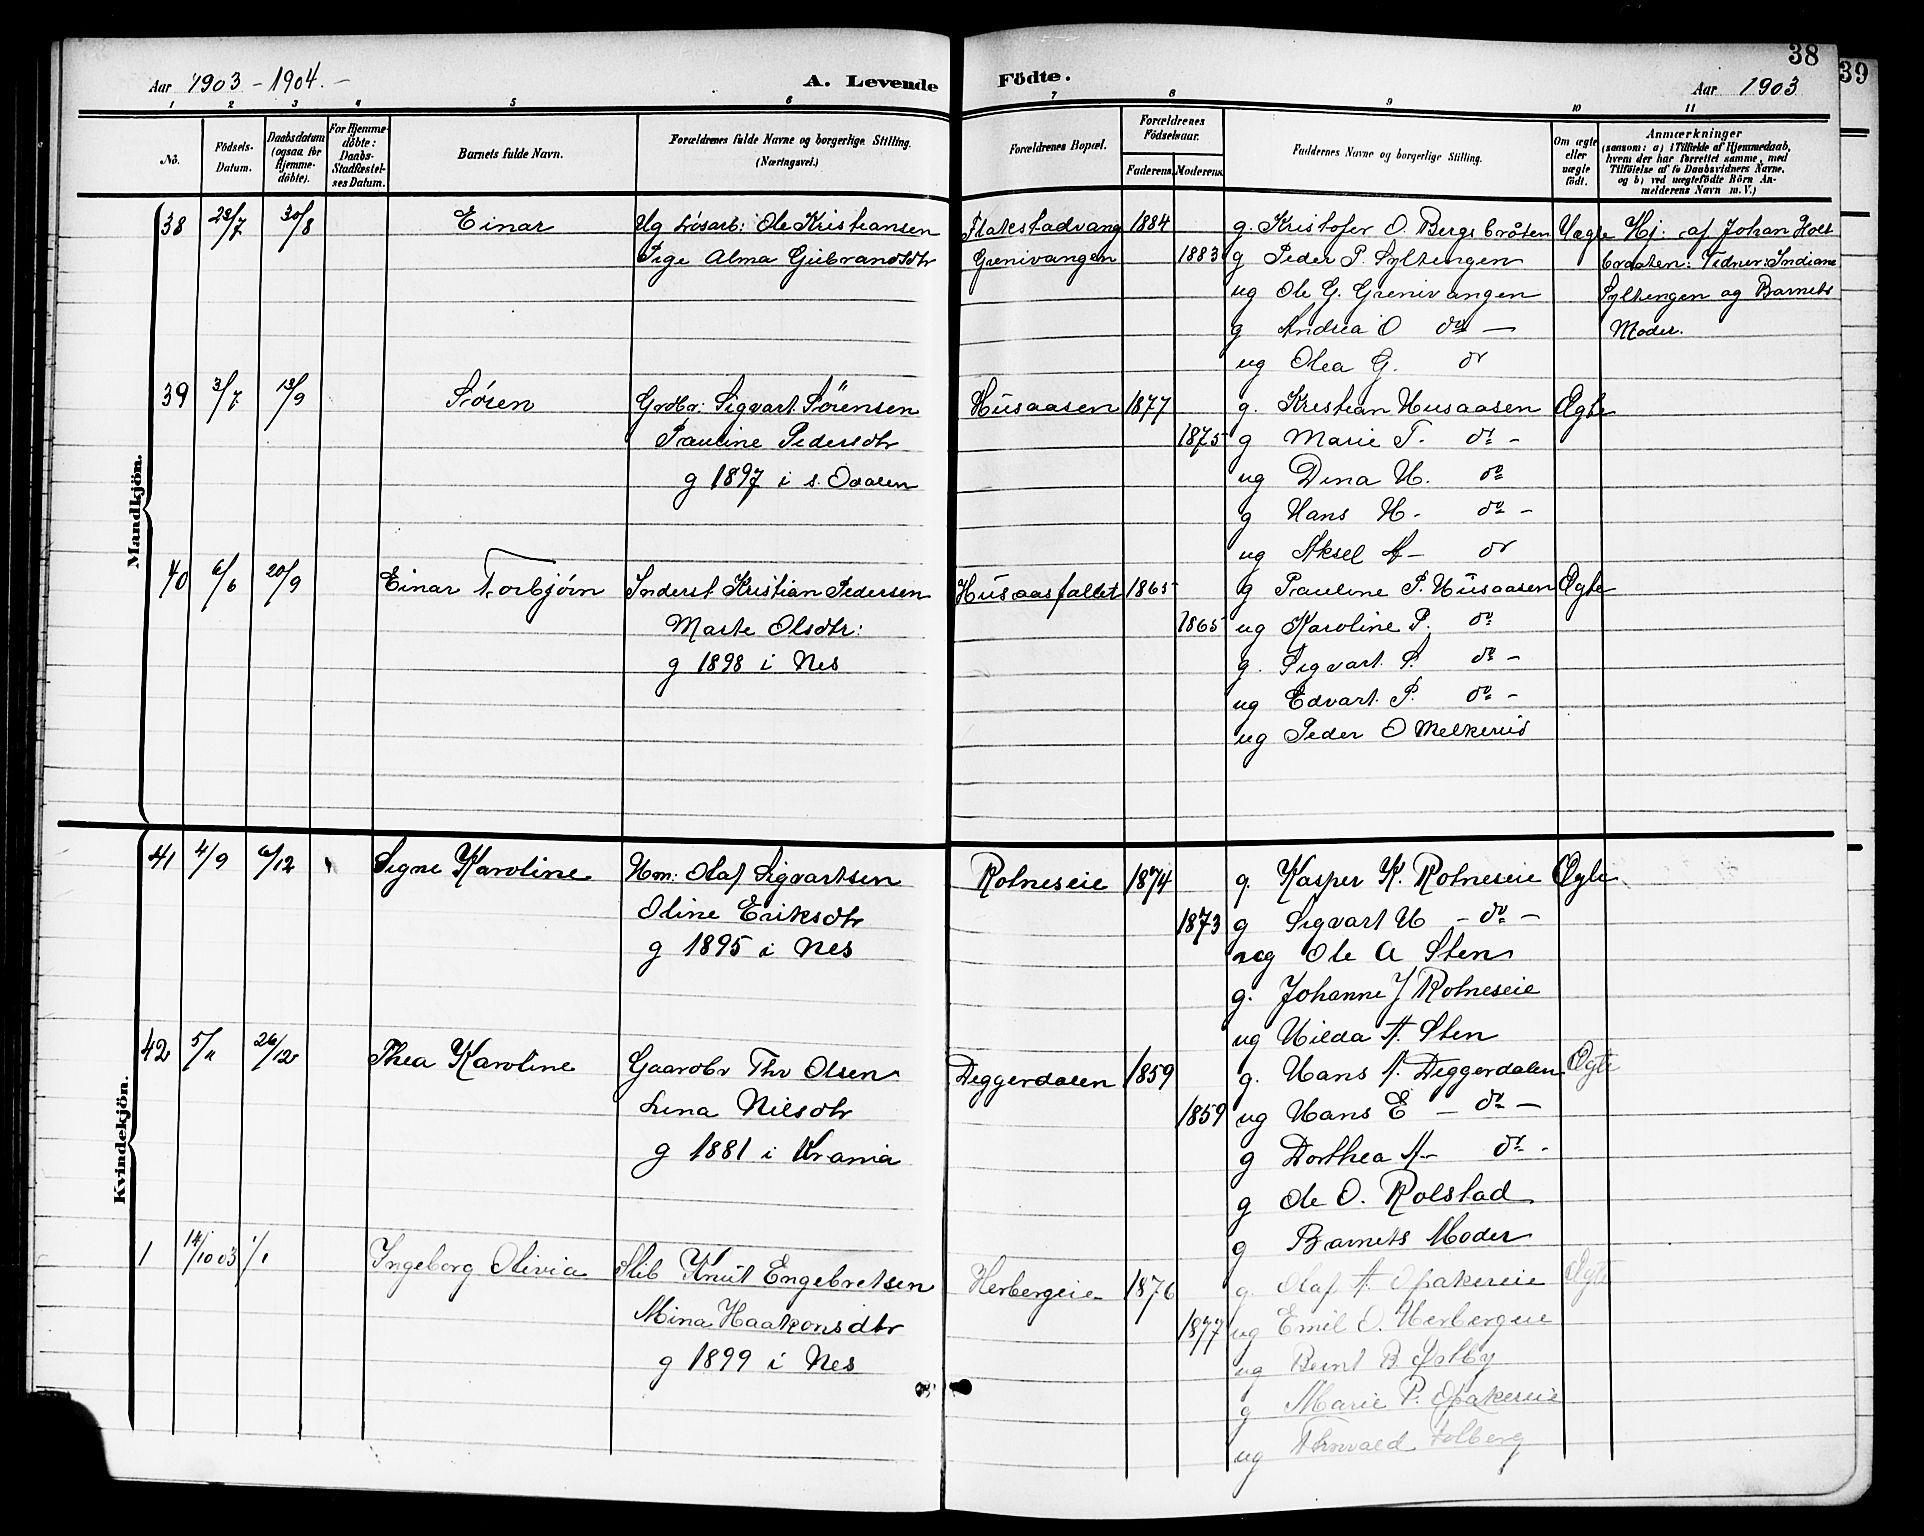 38
39
Aar 1903 - 1904. -
A. Levende Födte.
Aar 1903
1 2 3 4 5 6 7 8 9 10 11
No.
Födsels-Datum.
Daabsdatum (ogsaa for Hjemme-döbte).
For Hjemme-döbte: Daabs-Stadfæstel-ses Datum.
Barnets fulde Navn.
Forældrenes fulde Navne og borgerlige Stilling.
(Næringsvei.)
Forældrenes Bopæl.
Forældrenes Födselsaar.
Faderens. Moderens.
Faddernes Navne og borgerlige Stilling.
Om ægte eller uægte födt.
Anmærkninger
(saasom: a) i Tilfælde af Hjemmedaab,
hvem der har forrettet samme, med
Tilföielse af to Daabsvidners Navne,
og b) ved uægtefödte Börn An-
melderens Navn m. V.)
Mandkjön.
38 23/7 30/8 Einar Ug Løsarb: Ole Kristiansen Flakstadvang 1884 g. Kristofer O. Bergsbråten Uægte Hj: af Johan Holt
Pige Alma Gulbrandsdtr Grenivangen 1883 g Peder P. Syltengen braaten: Vidner: Indiane
ug Ole G. Grenivangen Syltengen og Barnets
g Andrea O do - Moder.
ug Olea G. do
39 3/7 13/9 Søren Grdbr: Sigvart Sörensen Husaasen 1877 g. Kristian Husaasen Ægte
Pauline Pedersdtr 1875 g Marie T. do -
g 1897 i s. Odalen ug Dina H. do
g Hans H - do -
ug Aksel A - do
40 6/6 20/9 Einar Torbjørn Inderst Kristian Pedersen Husaasfallet 1865 g Pauline P. Husaasen Ægte
Marte Olsdtr: 1865 ug Karoline P. do
g 1898 i Nes g. Sigvart S. do -
ug Edvart P. do -
ug Peder O Melkerud
Kvindekjön.
41 4/9 6/12 Signe Karoline Hm: Olaf Sigvartsen Rolneseie 1874 g. Kasper K. Rolneseie Ægte
Oline Eriksdtr 1873 g Sigvart H - do -
g 1895 i Nes ug Ole A Sten
g. Johanne J Rolneseie
ug Hilda A. Sten
42 5/11 26/12 Thea Karoline Gaardbr Thv Olsen Deggerdalen 1859 g. Hans A. Deggerdalen Ægte
Lina Nilsdtr 1859 ug Hans E - do -
g 1881 i Krania g Dorthea A - do -
g Ole O. Rolstad
g Barnets Moder
1 14/10 03 1/1 Ingeborg Olivia Slib Knut Engebretsen Herbergeie 1876 g. Olaf A. Opakereie Ægte
Mina Haakonsdtr 1877 ug Emil O. Herbergeie
g 1899 i Nes ug Bernt B. Østby
g Marie P. Opakereie
ug Thorvald Solberg